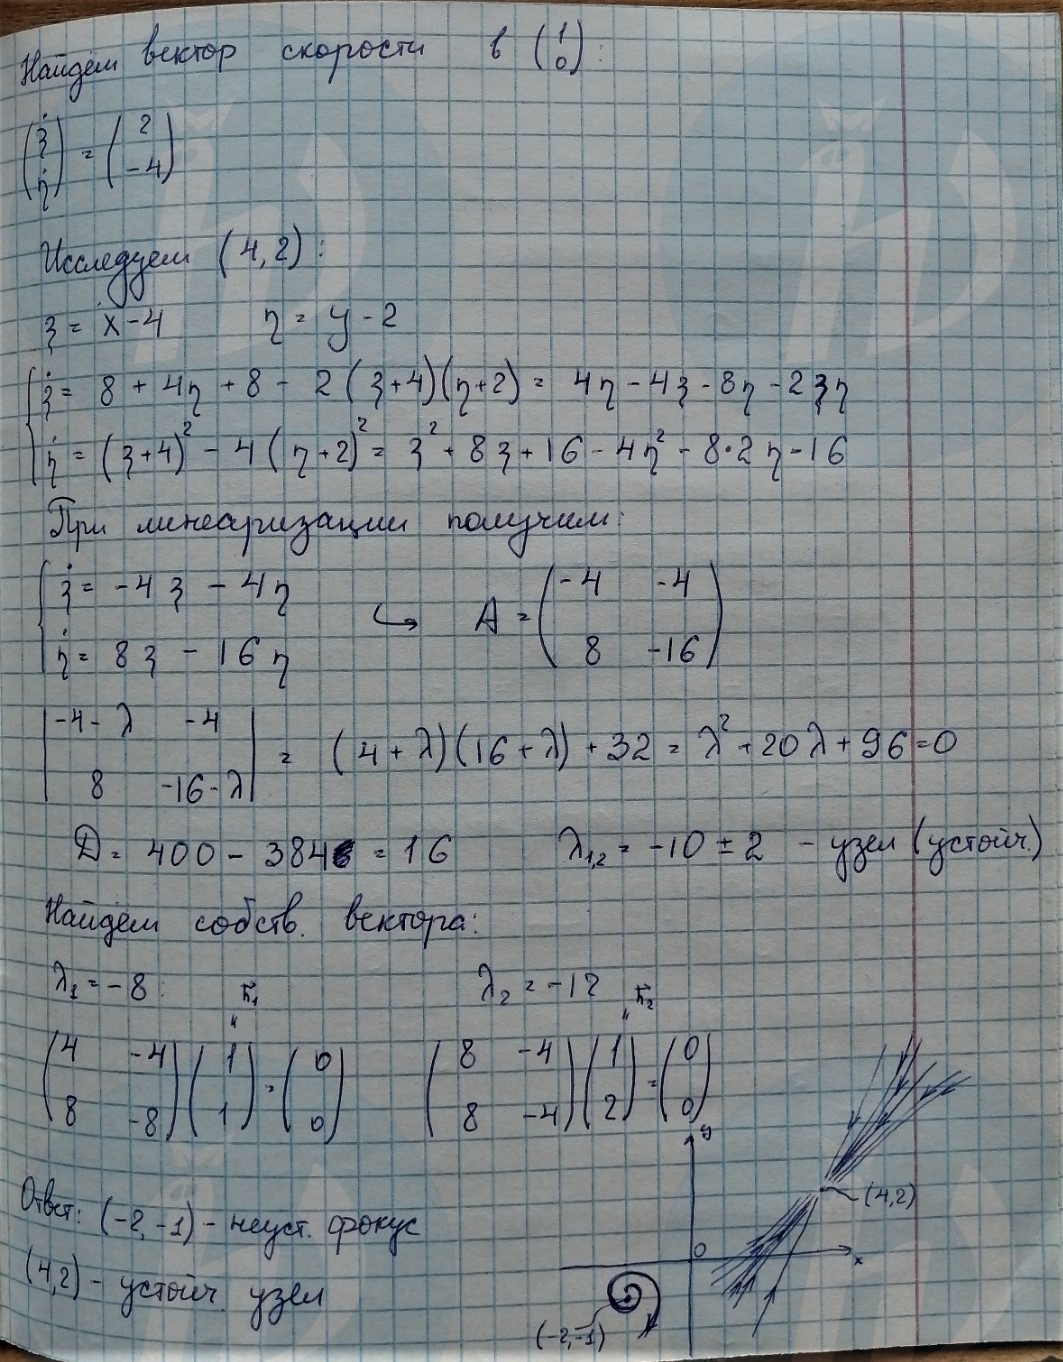 Найдём вектор скорости в (1 0):
(ξ̇ η̇) = (2 -4)
Исследуем (4,2):
ξ = x-4 η = y-2
{ ξ̇ = 8 + 4η + 8 - 2(ξ+4)(η+2) = 4η - 4ξ - 8η - 2ξη
{ η̇ = (ξ+4)² - 4(η+2)² = ξ² + 8ξ + 16 - 4η² - 8·2η - 16
При линеаризации получим:
{ ξ̇ = -4ξ - 4η
{ η̇ = 8ξ - 16η ↪ A = (-4 -4 8 -16)
|-4-λ -4 8 -16-λ| = (4+λ)(16+λ) + 32 = λ² + 20λ + 96 = 0
D = 400 - 384 = 16 λ1,2 = -10 ± 2 - узел (устойч.)
Найдём собств. вектора:
λ1 = -8: h̄1 λ2 = -12 h̄2
(4 -4 8 -8)(1 1) = (0 0) (8 -4 8 -4)(1 2) = (0 0)
Ответ: (-2,-1) - неуст. фокус
(4,2) - устойч. узел
y
(4,2)
0
x
(-2,-1)